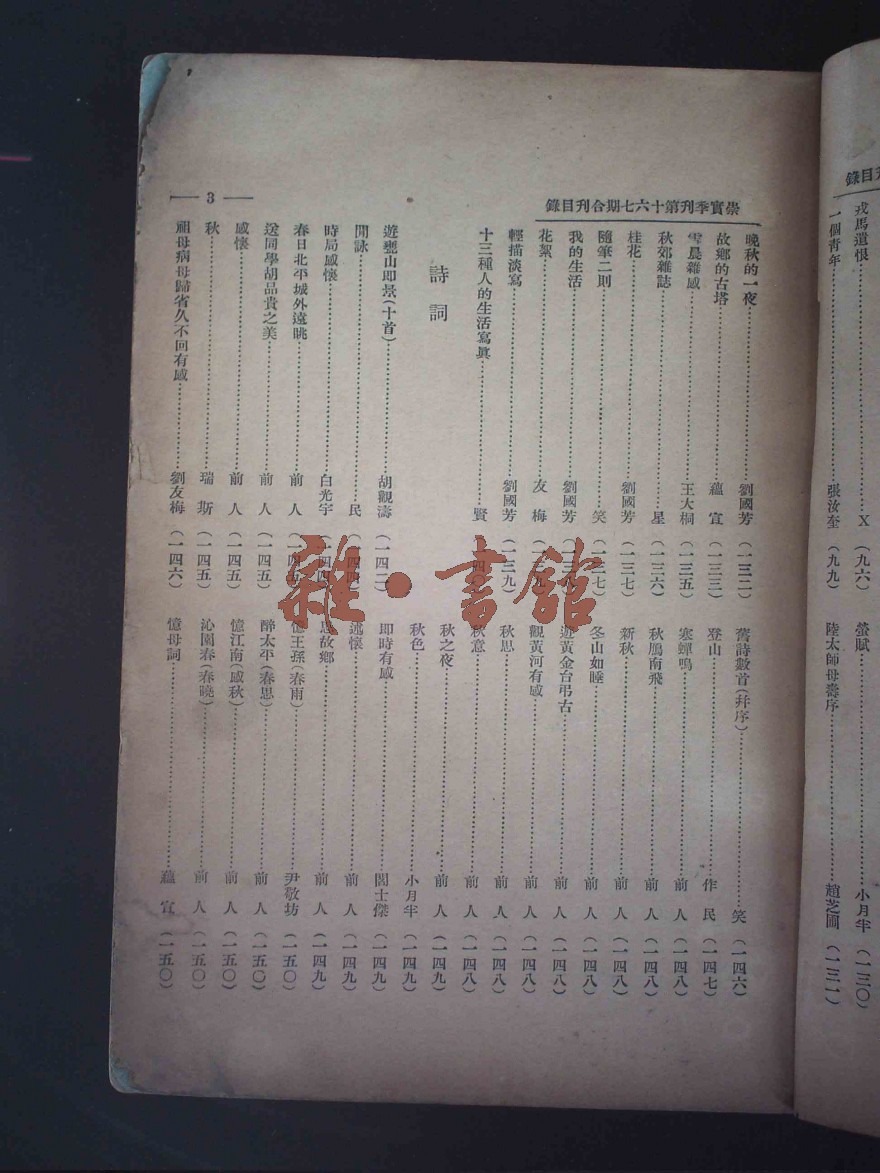 戎馬遺恨……X（九六）
一個青年……張汝奎（九九）
螢賦……小月半（一三〇）
陸太師母壽序……趙芝圃（一三一）
崇實季刊第十六七期合刊目錄
晚秋的一夜……劉國芳（一三二）
故鄉的古塔……蘊宣（一三三）
雪晨雜感……王大桐（一三五）
秋郊雜誌……星（一三六）
桂花……劉國芳（一三七）
隨筆二則……笑（一三七）
我的生活……劉國芳
花絮……友梅
輕描淡寫……劉國芳（一三九）
十三種人的生活寫眞……賢（一四〇）
詩詞
遊甕山即景（十首）……胡觀濤（一四二）
閒詠……民
時局感懷……白光宇
春日北平城外遠眺……前人
送同學胡品貴之美……前人（一四五）
感懷……前人（一四五）
秋……瑞斯（一四五）
祖母病母歸省久不回有感……劉友梅（一四六）
舊詩數首（幷序）……笑（一四六）
登山……作民（一四七）
寒蟬鳴……前人（一四八）
秋鴈南飛……前人（一四八）
新秋……前人（一四八）
冬山如睡……前人（一四八）
遊黃金台弔古……前人（一四八）
觀黃河有感……前人（一四八）
秋思……前人（一四八）
秋意……前人（一四八）
秋之夜……前人（一四九）
秋色……小月半（一四九）
即時有感……閻士傑（一四九）
述懷……前人（一四九）
思故鄉……前人（一四九）
憶王孫（春雨）……尹敬坊（一五〇）
醉太平（春思）……前人（一五〇）
憶江南（感秋）……前人（一五〇）
沁園春（春曉）……前人（一五〇）
憶母詞……蘊宣（一五〇）
— 3 —
雜·書館